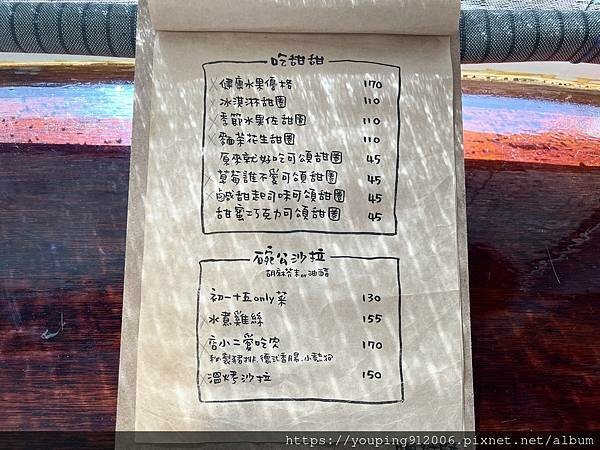 吃甜甜
健康水果優格 170
冰淇淋甜圈 110
季節水果佐甜圈 110
麵茶花生甜圈 110
原來就好吃可頌甜圈 45
草莓誰不愛可頌甜圈 45
鹹甜起司味可頌甜圈 45
甜蜜巧克力可頌甜圈 45
碗公沙拉
胡麻芥末or油醋
初一十五only菜 130
水煮雞絲 155
店小二愛吃肉 170
秘製豬排.德式香腸.小熱狗
溫烤沙拉 150
https://youping912006.pixnet.net/album